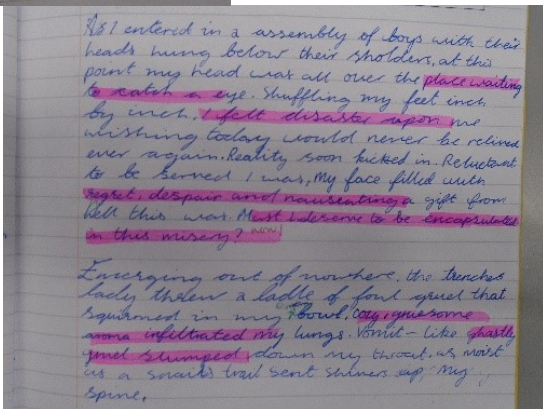 As I entered in a assembly of boys with their
heads hung below their sholders, at this
point my head was all over the place waiting
to catch a eye. Shuffling my feet inch
by inch. I felt disaster upon me
wishing today would never be relived
ever again. Reality soon kicked in. Reluctant
to be served I was, My face filled with
regret, despair and nauseating a gift from
hell this was. Must I deserve to be encapsulated
in this misery? wow!
Emerging out of nowhere, the
lady threw a ladle of foul gruel that
squirmed in my bowl, gruesome
infiltrated my lungs. Vomit-like ghastly
gruel slumped down my throat. as moist
as a snails trail sent shivers up, my
spine.